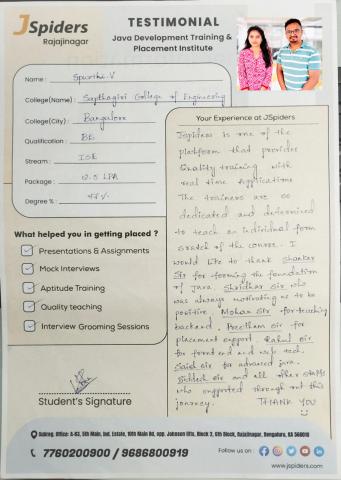 JSpiders
Rajajinagar
TESTIMONIAL
Java Development Training &
Placement Institute
Name : Spurthi.V
College(Name) : Sapthagiri College of Engineering
College(City) : Bangalore
Qualification : BE
Stream : ISE
Package : LPA
Degree % :
What helped you in getting placed ?
Presentations & Assignments
Mock Interviews
Aptitude Training
Quality teaching
Interview Grooming Sessions
Student's Signature
Your Experience at JSpiders
Jspiders is one of the
platform that provides
Quality training with
real time Applications
The trainers are so
dedicated and determined
to teach an individual form
sratch of the course. I
would like to thank Shankar
Sir for forming the foundation
of Java. Shridhar sir who
was always motivating us to be
positive. Mohan sir for teaching
backend, Preetham sir for
placement support. Rahul sir
for frontend and web tech.
sir for advanced java.
Siddesh sir and all other staffs
who supported through out this
journey. THANK YOU
Regd. Office: A-63, 5th Main, Ind. Estate, 19th Main Rd, opp. Johnson lifts, Block 2, 6th Block, Rajajinagar, Bengaluru, KA 560010
7760200900 / 9686800919
Follow us on :
www.jspiders.com